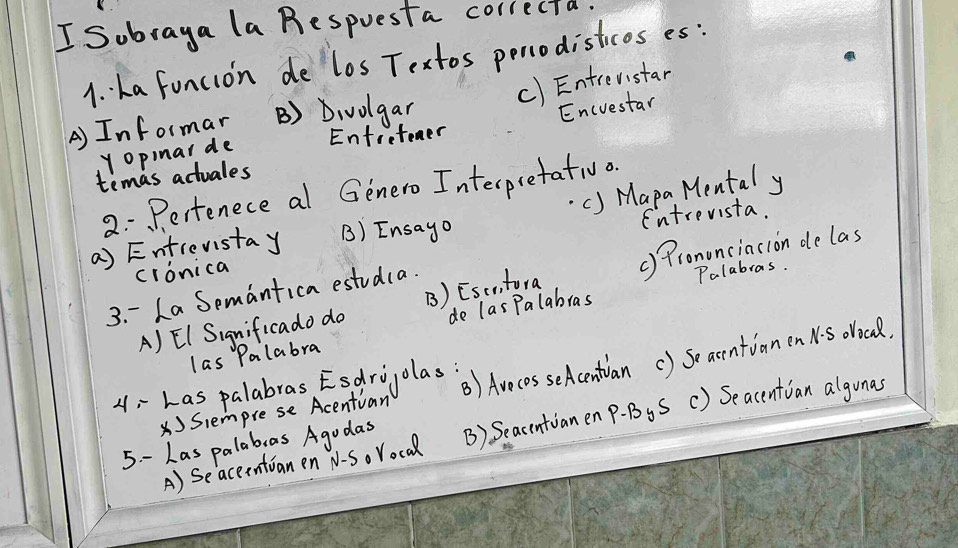 I Subraya la Respuesta correcta.
1.- La función de los Textos periodísticos es:
A) Informar B) Divulgar C) Entrevistar
y opinar de Entretener Encuestar
temas actuales
2.- Pertenece al Género Interpretativo.
a) Entrevista y B) Ensayo c) Mapa Mental y
crónica Entrevista.
3.- La Semántica estudia.
A) El Significado do B) Escritura c) Pronunciación de las
las Palabra de las Palabras Palabras.
4.- Las palabras Esdrújolas:
A) Siempre se Acentúan B) Aveces se Acentúan c) Se acentúan en N-S o Vocal.
5.- Las palabras Agudas
A) Se aceentúan en N-S o Vocal B) Se acentúan en P-B y S c) Se acentúan algunas